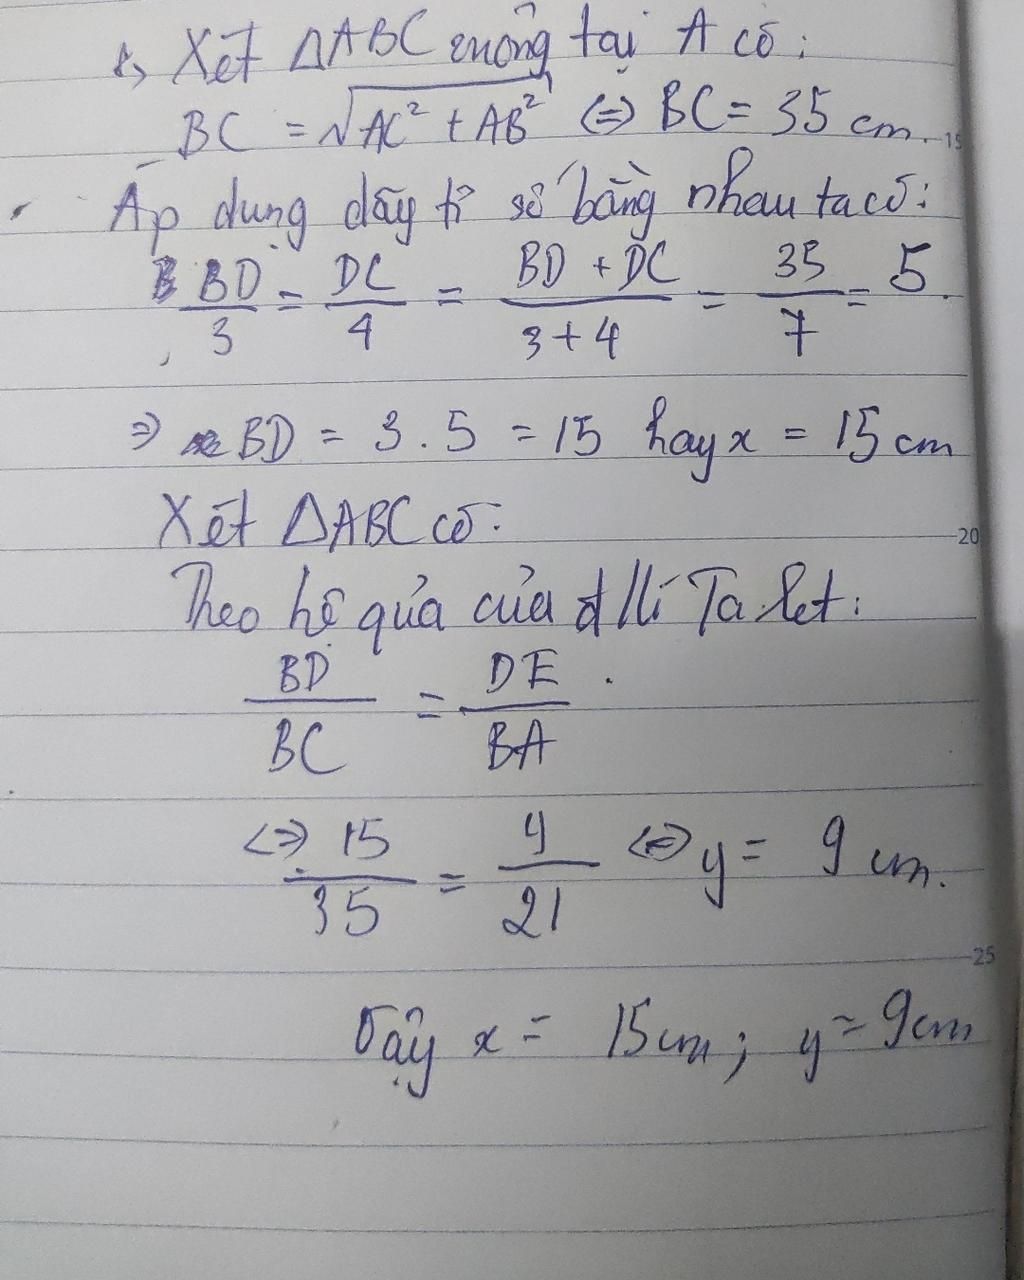 b, Xét ΔABC vuông tại A có:
BC = √AC² + AB² <=> BC = 35 cm.
15
Áp dụng dãy tỉ số bằng nhau ta có:
BD/3 = DC/4 = BD + DC/3 + 4 = 35/7 = 5.
=> BD = 3 . 5 = 15 hay x = 15 cm
Xét ΔABC có:
20
Theo hệ quả của đ lí Ta let:
BD/BC = DE/BA .
<=> 15/35 = y/21 <=> y = 9 cm.
25
Vậy x = 15cm; y = 9cm